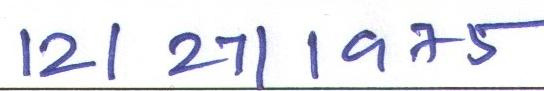 12/ 27/ 1975